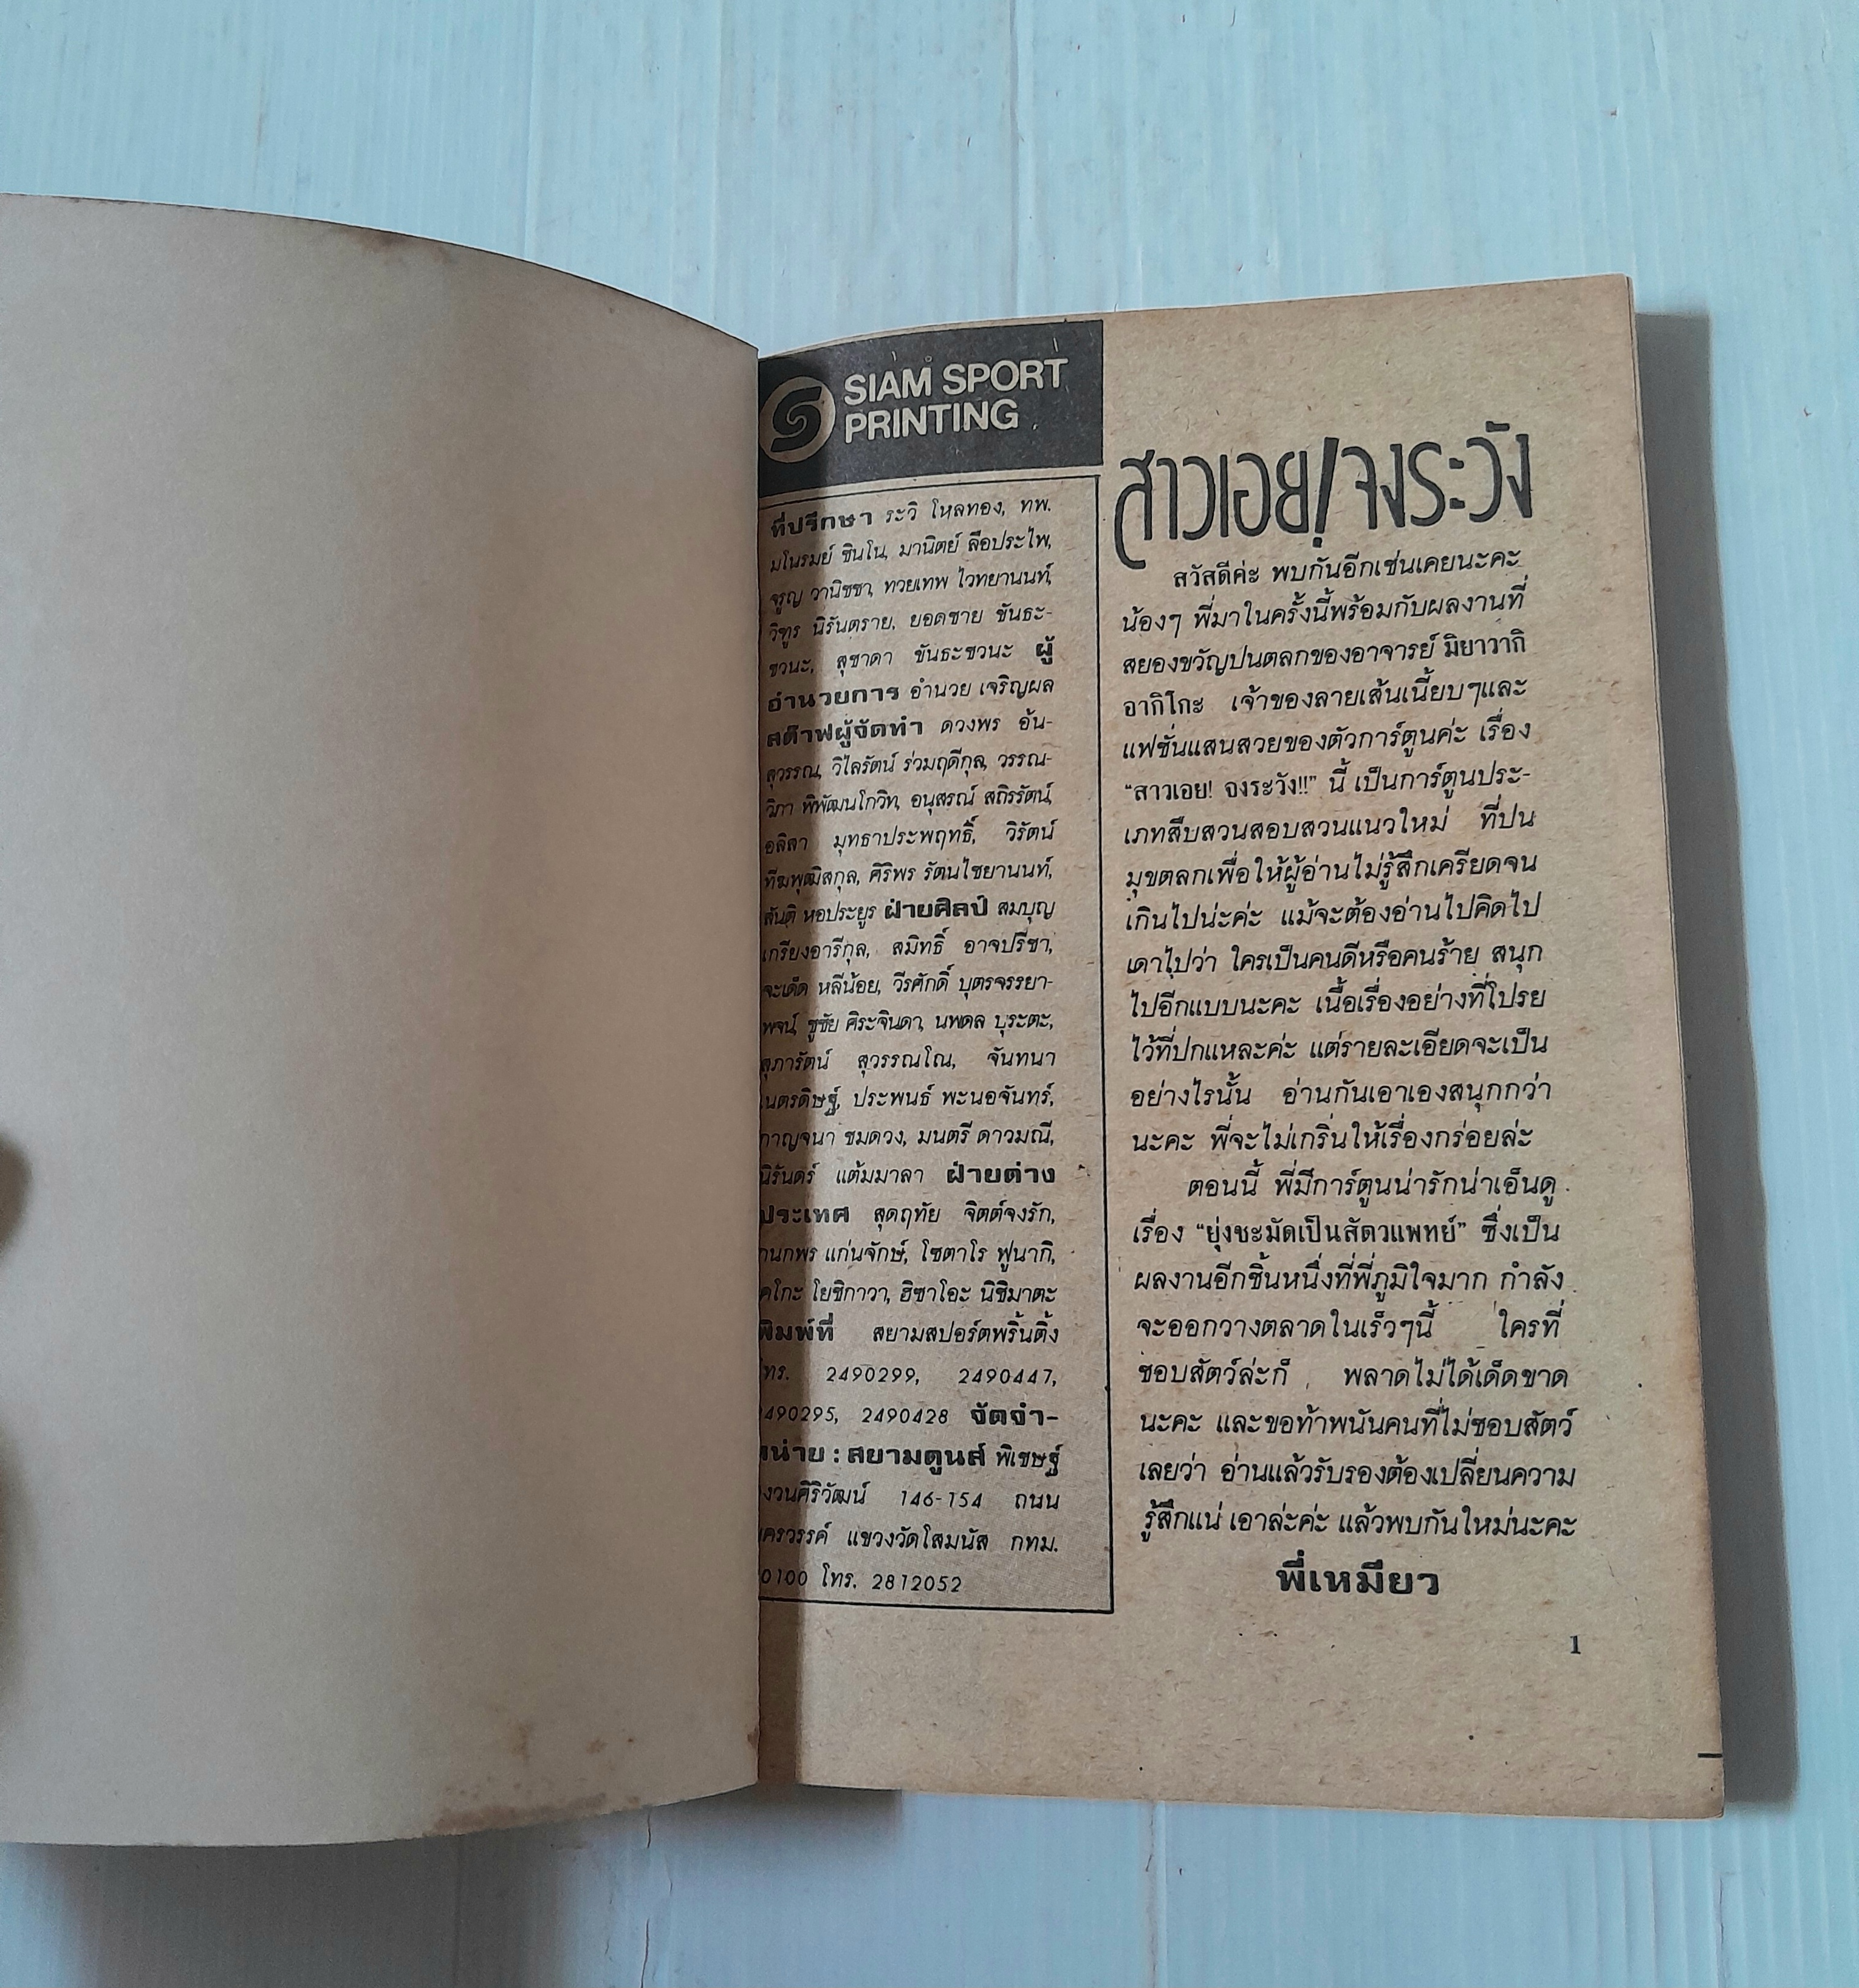 SIAM SPORT
PRINTING
ที่ปรึกษา ระวิ โหลทอง, ทพ.
มโนรมย์ ชินโน, มานิตย์ ลือประไพ,
จรูญ วานิชชา, ทวยเทพ ไวทยานนท์,
วิฑูร นิรันตราย, ยอดชาย ขันธะ-
ชวนะ, สุชาดา ขันธะชวนะ ผู้
อำนวยการ อำนวย เจริญผล
สต๊าฟผู้จัดทำ ดวงพร อ้น-
สุวรรณ, วิไลรัตน์ ร่วมฤดีกุล, วรรณ-
วิภา พิพัฒนโกวิท, อนุสรณ์ สถิรรัตน์,
อลิสา มุทธาประพฤทธิ์, วิรัตน์
ทีฆพุฒิสกุล, ศิริพร รัตนไชยานนท์,
สันติ หอประยูร ฝ่ายศิลป์ สมบุญ
เกรียงอารีกุล, สมิทธิ์ อาจปรีชา,
จะเด็ด หลีน้อย, วีรศักดิ์ บุตรจรรยา-
พจน์, ชูชัย ศิระจินดา, นพดล บุระตะ,
สุภารัตน์ สุวรรณโณ, จันทนา
เนตรดิษฐ์, ประพนธ์ พะนอจันทร์,
กาญจนา ชมดวง, มนตรี ดาวมณี,
นิรันดร์ แต้มมาลา ฝ่ายต่าง
ประเทศ สุดฤทัย จิตต์จงรัก,
กนกพร แก่นจักษ์, โชตาโร ฟูนากิ,
โยชิกาวา, ฮิซาโอะ นิชิมาตะ
พิมพ์ที่ สยามสปอร์ตพริ้นติ้ง
โทร. 2490299, 2490447,
2490295, 2490428 จัดจำ-
หน่าย : สยามตูนส์ พิเชษฐ์
งวนศิริวัฒน์ 146-154 ถนน
นครวรรค์ แขวงวัดโสมนัส กทม.
0100 โทร. 2812052
สาวเอย! จงระวัง
สวัสดีค่ะ พบกันอีกเช่นเคยนะคะ
น้องๆ พี่มาในครั้งนี้พร้อมกับผลงานที่
สยองขวัญปนตลกของอาจารย์ มิยาวากิ
อากิโกะ เจ้าของลายเส้นเนี้ยบๆและ
แฟชั่นแสนสวยของตัวการ์ตูนค่ะ เรื่อง
“สาวเอย! จงระวัง!!” นี้ เป็นการ์ตูนประ-
เภทสืบสวนสอบสวนแนวใหม่ ที่ปน
มุขตลกเพื่อให้ผู้อ่านไม่รู้สึกเครียดจน
เกินไปน่ะค่ะ แม้จะต้องอ่านไปคิดไป
เดาไปว่า ใครเป็นคนดีหรือคนร้าย สนุก
ไปอีกแบบนะคะ เนื้อเรื่องอย่างที่โปรย
ไว้ที่ปกแหละค่ะ แต่รายละเอียดจะเป็น
อย่างไรนั้น อ่านกันเอาเองสนุกกว่า
นะคะ พี่จะไม่เกริ่นให้เรื่องกร่อยล่ะ
ตอนนี้ พี่มีการ์ตูนน่ารักน่าเอ็นดู
เรื่อง “ยุ่งชะมัดเป็นสัตวแพทย์” ซึ่งเป็น
ผลงานอีกชิ้นหนึ่งที่พี่ภูมิใจมาก กำลัง
จะออกวางตลาดในเร็วๆนี้ ใครที่
ชอบสัตว์ล่ะก็ พลาดไม่ได้เด็ดขาด
นะคะ และขอท้าพนันคนที่ไม่ชอบสัตว์
เลยว่า อ่านแล้วรับรองต้องเปลี่ยนความ
รู้สึกแน่ เอาล่ะค่ะ แล้วพบกันใหม่นะคะ
พี่เหมียว
1